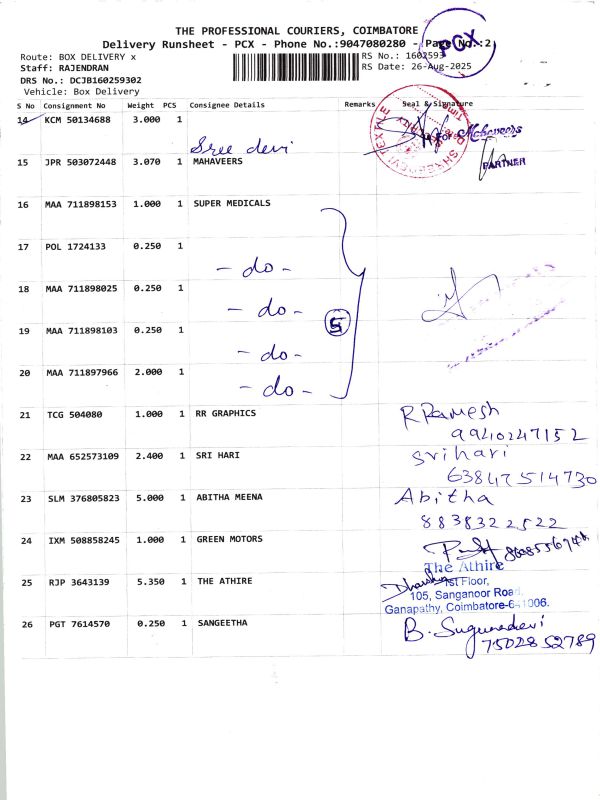 THE PROFESSIONAL COURIERS, COIMBATORE
Delivery Runsheet - PCX - Phone No.:9047080280 - Page No.:2
PCX
Route: BOX DELIVERY x
RS No.: 1602593
Staff: RAJENDRAN
RS Date: 26-Aug-2025
DRS No.: DCJB160259302
Vehicle: Box Delivery
S No Consignment No Weight PCS Consignee Details Remarks Seal & Signature
14 KCM 50134688 3.000 1 Sree devi
SHREE DEVI TEXTILE
For Mahaveers
PARTNER
15 JPR 503072448 3.070 1 MAHAVEERS
16 MAA 711898153 1.000 1 SUPER MEDICALS
17 POL 1724133 0.250 1 - do -
18 MAA 711898025 0.250 1 - do -
5
19 MAA 711898103 0.250 1 - do -
20 MAA 711897966 2.000 1 - do -
21 TCG 504080 1.000 1 RR GRAPHICS R Ramesh
9940247152
22 MAA 652573109 2.400 1 SRI HARI Srihari
63847514730
23 SLM 376805823 5.000 1 ABITHA MEENA Abitha
8838322522
24 IXM 508858245 1.000 1 GREEN MOTORS
25 RJP 3643139 5.350 1 THE ATHIRE The Athire
1st Floor,
105, Sanganoor Road,
Ganapathy, Coimbatore-641006.
26 PGT 7614570 0.250 1 SANGEETHA B. Sugunadevi
7502852789